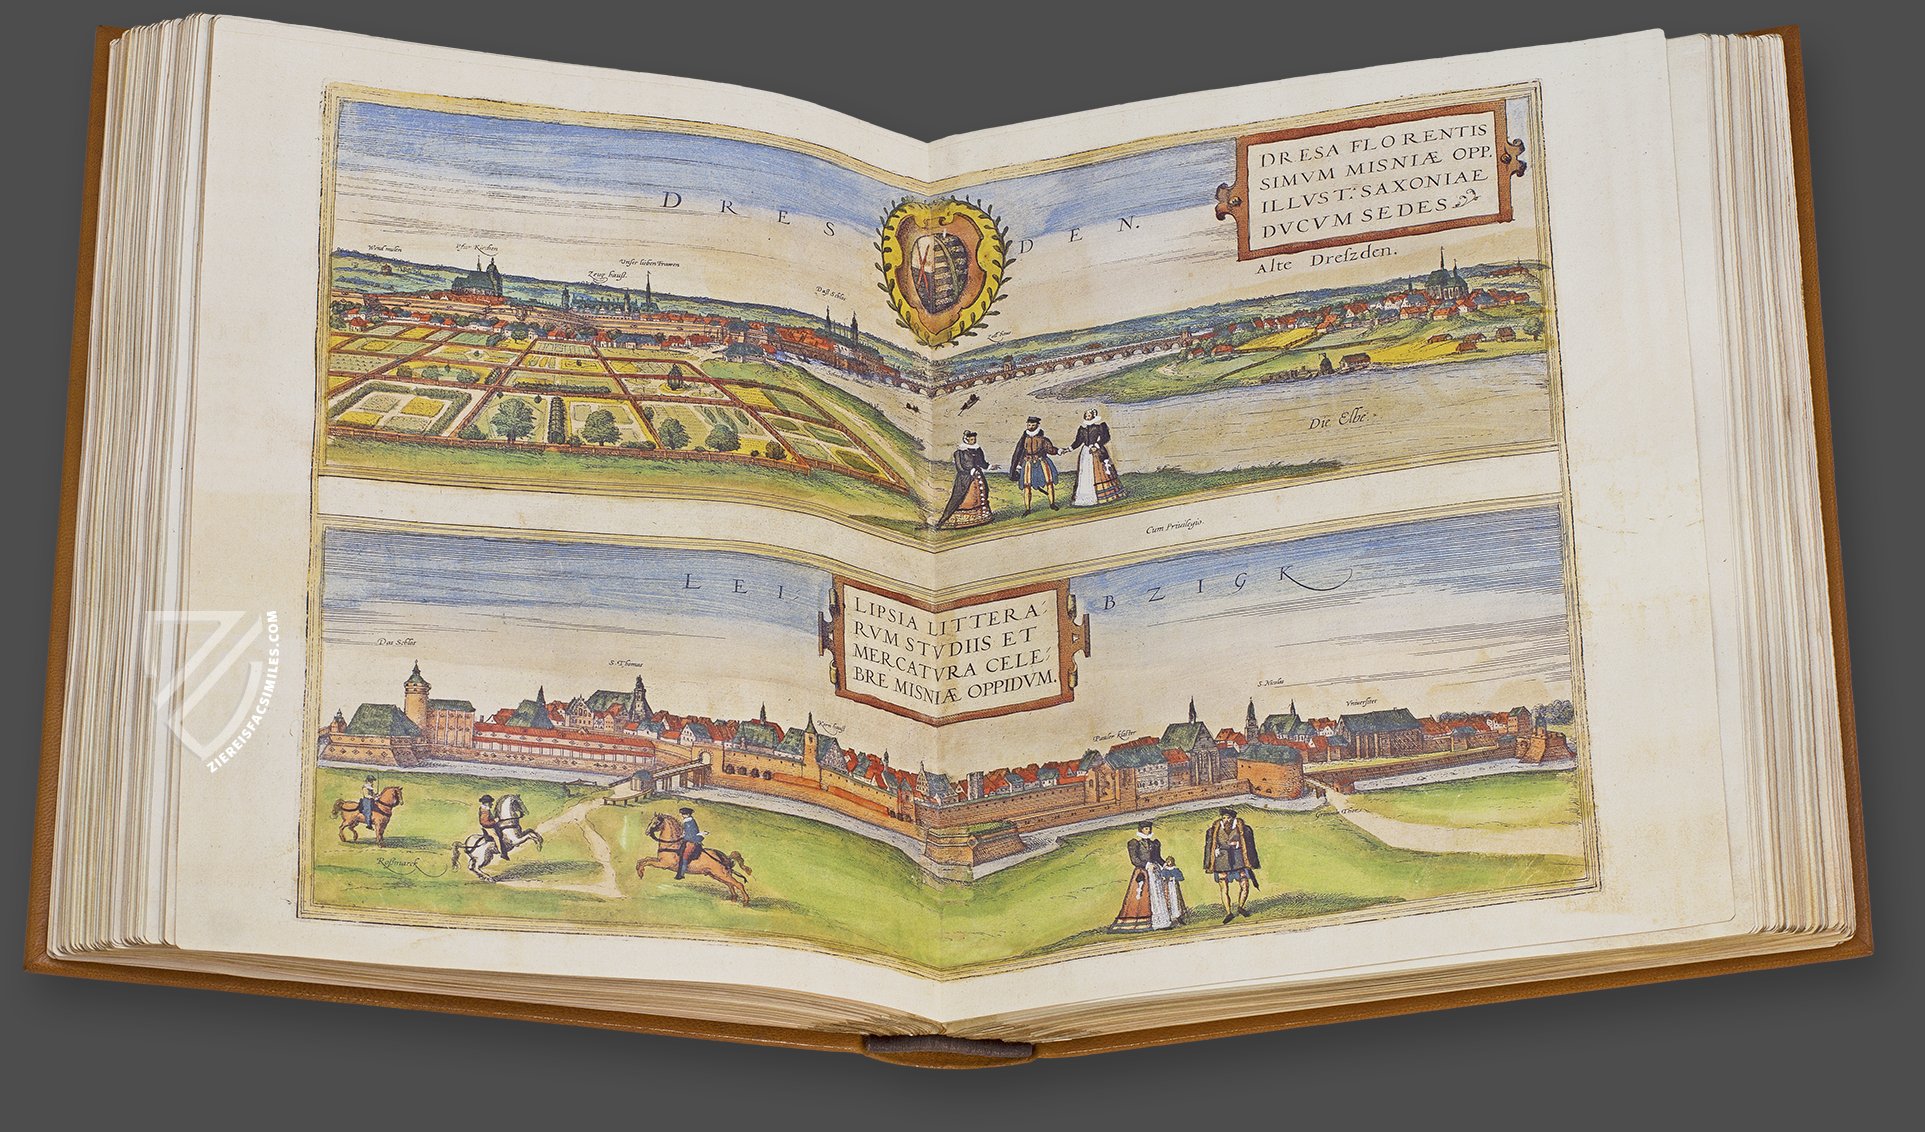 DRES DEN.
DRESA FLORENTIS
SIMVM MISNIÆ OPP.
ILLVST: SAXONIAE
DVCVM SEDES
Alte Dreſzden.
Wind mulen
Pfar Kirchen
Zeug hauß.
Vnſer lieben Frawen
Daß Schlos
Die Elbe.
Cum Priuilegio.
LEI BZIGK
LIPSIA LITTERA
RVM STVDIIS ET
MERCATVRA CELE
BRE MISNIÆ OPPIDVM.
Das Schlos
S. Thomas
Korn hauß
Pauler kloſter
S. Nicolas
Vniuerſitet
Roſſmarck
ZIEREISFACSIMILES.COM